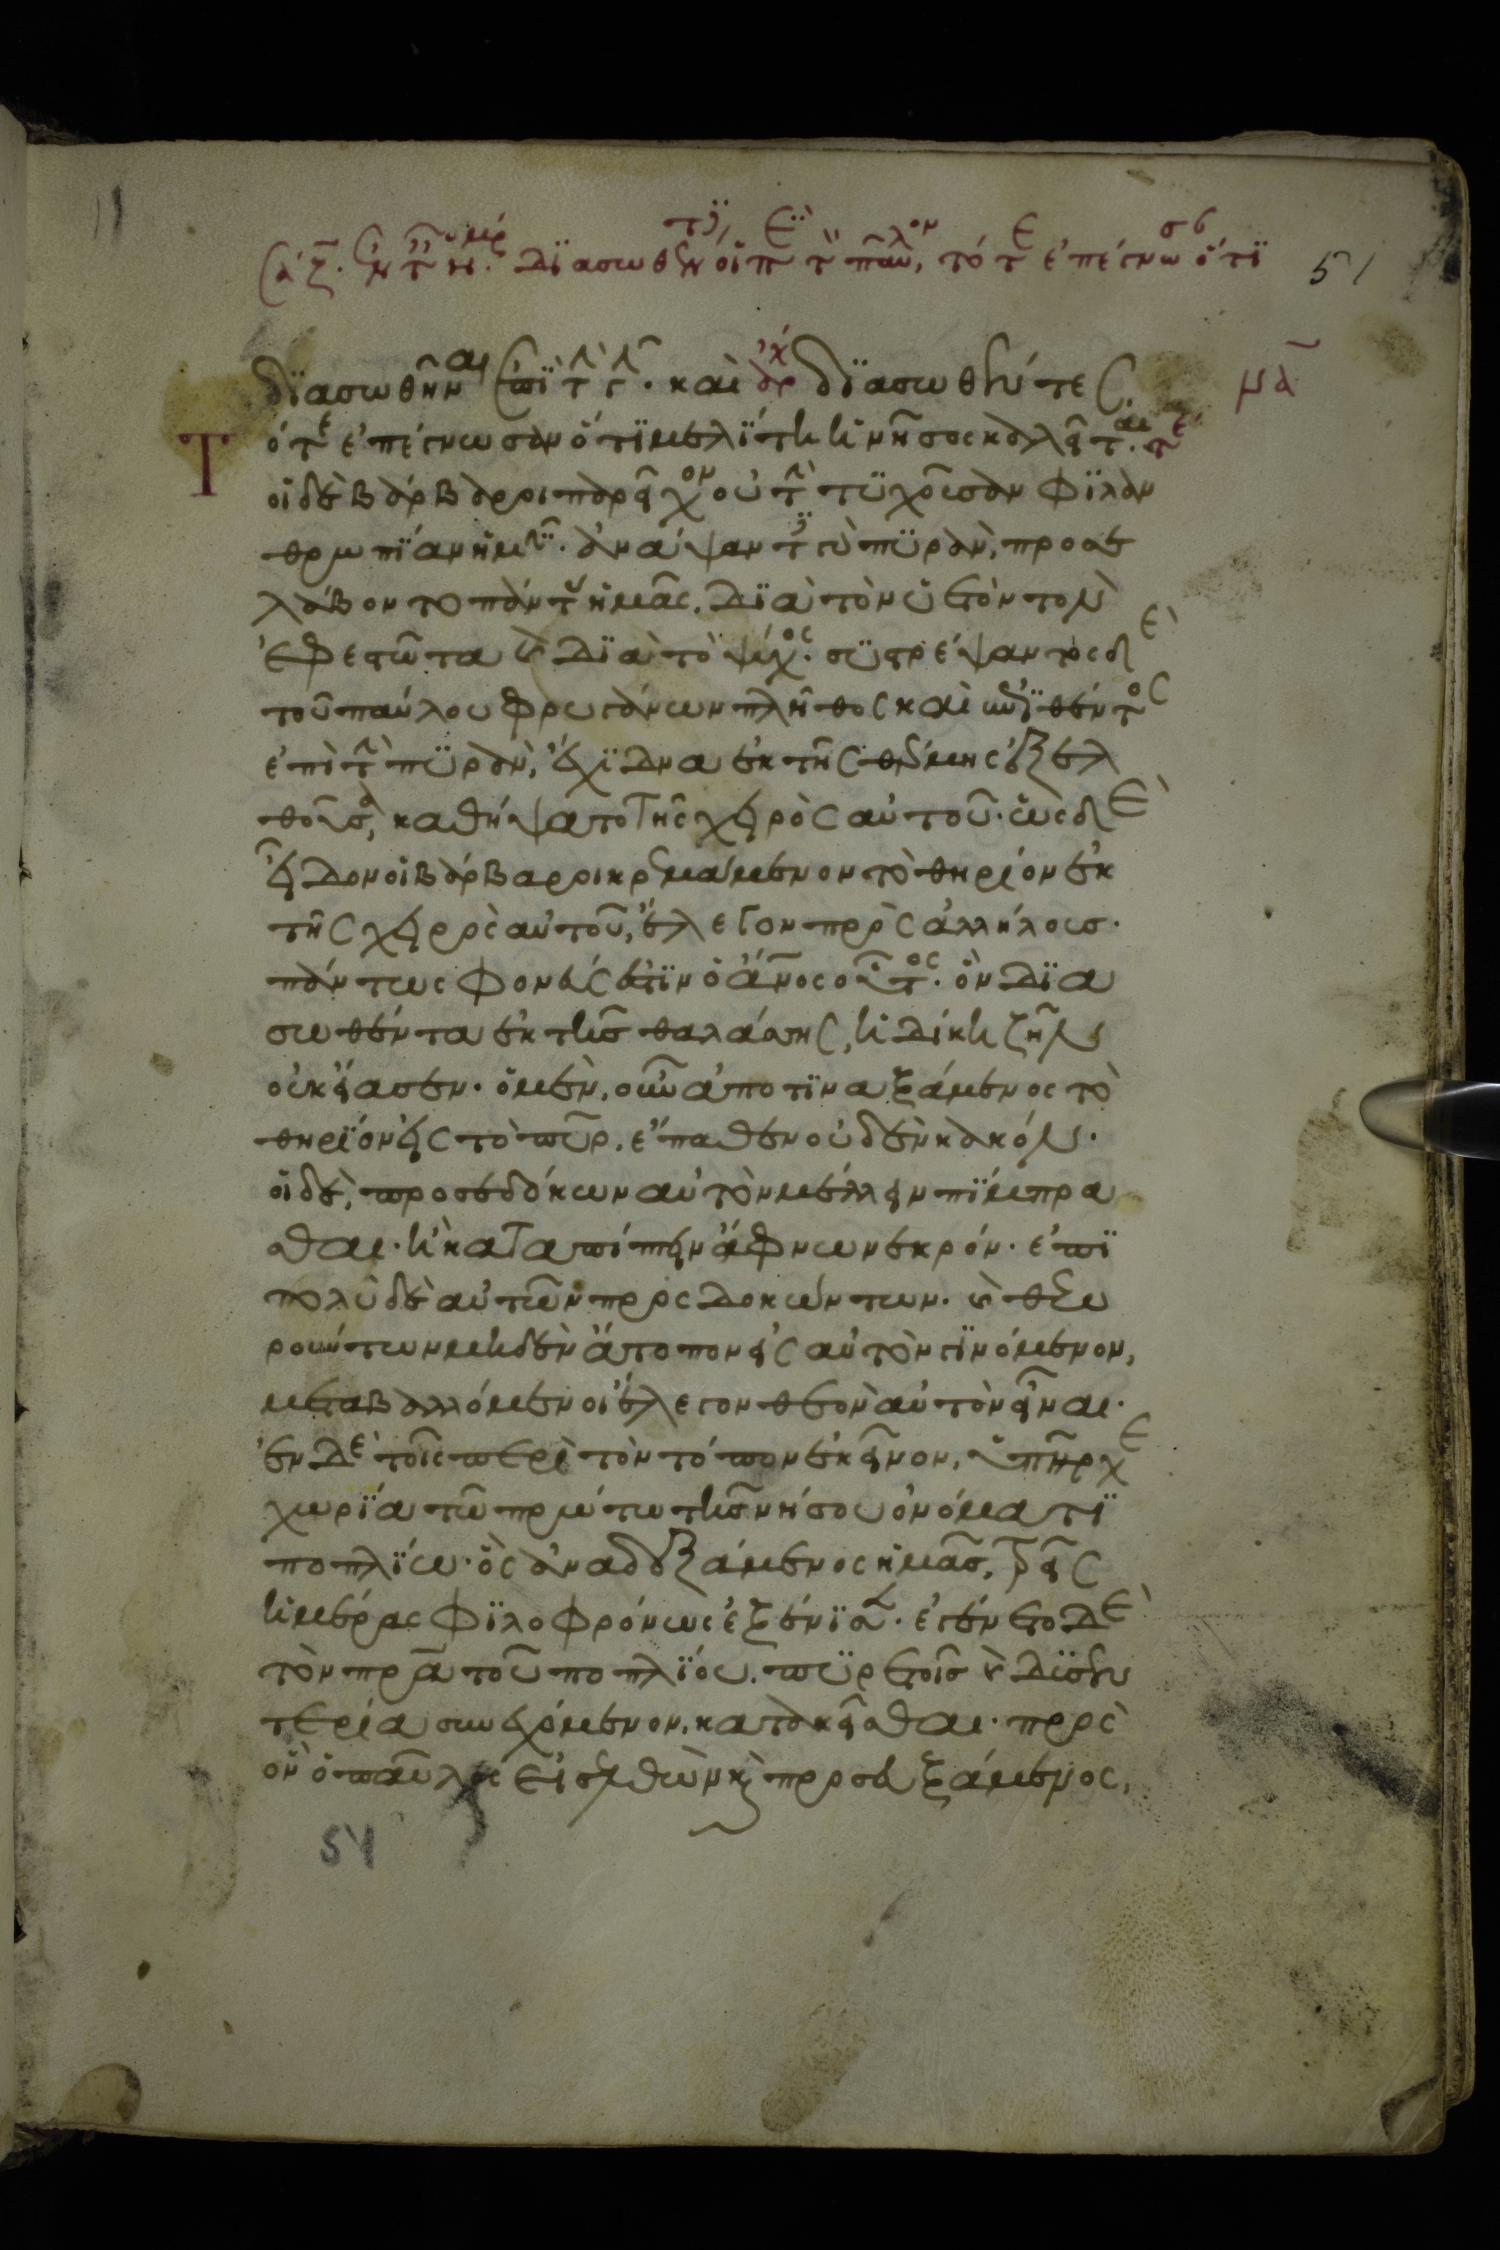 διασωθῆναι ἐπὶ τὴν γῆν. καὶ ἀρχ διασωθέντες
ότε ἐπέγνωσαν ὅτι μελίτη ἡ νῆσος καλεῖται. τε
οἱ δὲ βάρβαροι παρεῖχον οὐ τὴν τυχοῦσαν φιλαν
θρωπίαν ἡμῖν. ἀνάψαντες γὰρ πυρὰν, προσε
λάβοντο πάντας ἡμᾶς, διὰ τὸν ὑετὸν τὸν
ἐφεστῶτα καὶ διὰ τὸ ψύχος. συστρέψαντος δὲ
τοῦ παύλου φρυγάνων πλῆθος καὶ ἐπιθέντος
ἐπὶ τὴν πυρὰν, ἔχιδνα ἐκ τῆς θέρμης ἐξελ
θοῦσα, καθήψατο τῆς χειρὸς αὐτοῦ. ὡς δὲ
εἶδον οἱ βάρβαροι κρεμάμενον τὸ θηρίον ἐκ
τῆς χειρὸς αὐτοῦ, ἔλεγον πρὸς ἀλλήλους.
πάντως φονεύς ἐστιν ὁ ἄνος οὗτος. ὃν δια
σωθέντα ἐκ τῆς θαλάσσης, ἡ δίκη ζῆν
οὐκ εἴασεν. ὁ μὲν, οὖν ἀποτιναξάμενος τὸ
θηρίον εἰς τὸ πῦρ, ἔπαθεν οὐδὲν κακόν.
οἱ δὲ, προσεδόκων αὐτὸν μέλλειν πίμπρα
σθαι. ἢ καταπίπτειν ἄφνω νεκρόν. ἐπὶ
πολὺ δὲ αὐτῶν προσδοκώντων. καὶ θεω
ρούντων μηδὲν ἄτοπον εἰς αὐτὸν γινόμενον,
μεταβαλλόμενοι ἔλεγον θεὸν αὐτὸν εἶναι.
ἐν δὲ τοῖς περὶ τὸν τόπον ἐκεῖνον, ὑπῆρχε
χωρία τῶ πρώτω τῆς νήσου ὀνόματι
ποπλίω. ὃς ἀναδεξάμενος ἡμᾶς, τρεῖς
ἡμέρας φιλοφρόνως ἐξένισεν. ἐγένετο δὲ
τὸν πρα τοῦ ποπλίου, πυρετοῖς καὶ δυσεν
τερία συνεχόμενον, κατακεῖσθαι. πρὸς
ὃν ὁ παῦλος εἰσελθὼν καὶ προσευξάμενος,
51
μα
51